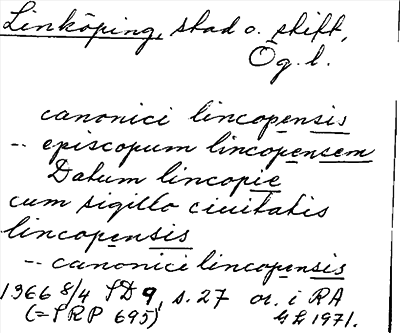 Linköping, stad o. stift,
Ög. l.
canonici lincopensis
-- episcopum lincopensem
Datum lincopie
cum sigillo ciuitatis
lincopensis
-- canonici lincopensis
1366 8/4 SD 9, s. 27 or. i RA
(= SRP 695) G L 1971.